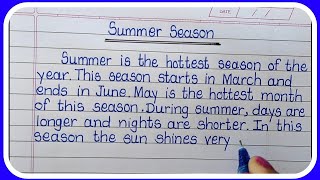 Summer Season
Summer is the hottest season of the
year. This season starts in March and
ends in June. May is the hottest month
of this season. During summer, days are
longer and nights are shorter. In this
season the sun shines very